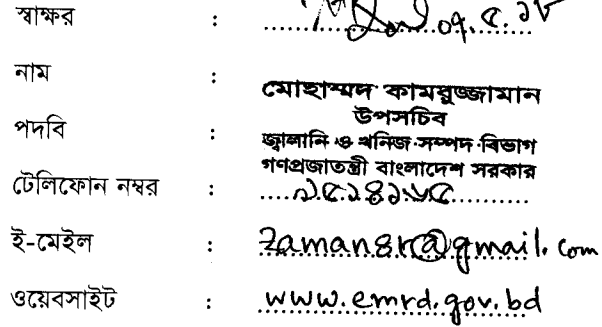 স্বাক্ষর :
নাম : মোহাম্মদ কামরুজ্জামান
উপসচিব
পদবি : জ্বালানি ও খনিজ সম্পদ বিভাগ
গণপ্রজাতন্ত্রী বাংলাদেশ সরকার
টেলিফোন নম্বর :
ই-মেইল : zaman8r@gmail.com
ওয়েবসাইট : www.emrd.gov.bd